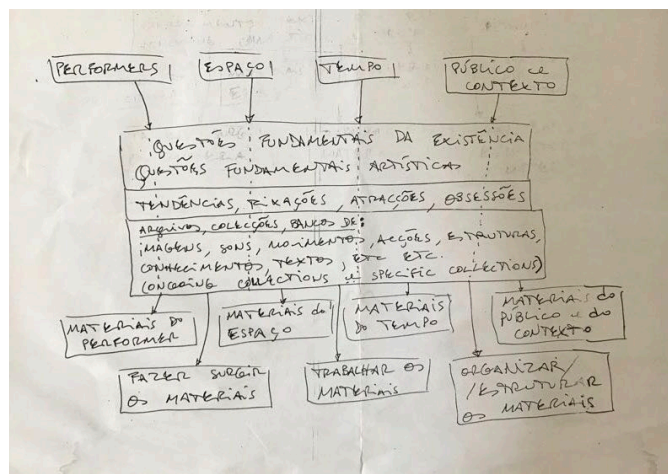 PERFORMERS
ESPAÇO
TEMPO
PÚBLICO e
CONTEXTO
QUESTÕES FUNDAMENTAIS DA EXISTÊNCIA
QUESTÕES FUNDAMENTAIS ARTÍSTICAS
TENDÊNCIAS, FIXAÇÕES, ATRACÇÕES, OBSESSÕES
ARQUIVOS, COLECÇÕES, BANCOS DE:
IMAGENS, SONS, MOVIMENTOS, ACÇÕES, ESTRUTURAS,
CONHECIMENTOS, TEXTOS, ETC ETC.
(ONGOING COLLECTIONS e SPECIFIC COLLECTIONS)
MATERIAIS DO
PERFORMER
MATERIAIS do
ESPAÇO
MATERIAIS
DO TEMPO
MATERIAIS do
PÚBLICO e do
CONTEXTO
FAZER SURGIR
OS MATERIAIS
TRABALHAR OS
MATERIAIS
ORGANIZAR/
/ESTRUTURAR
OS MATERIAIS